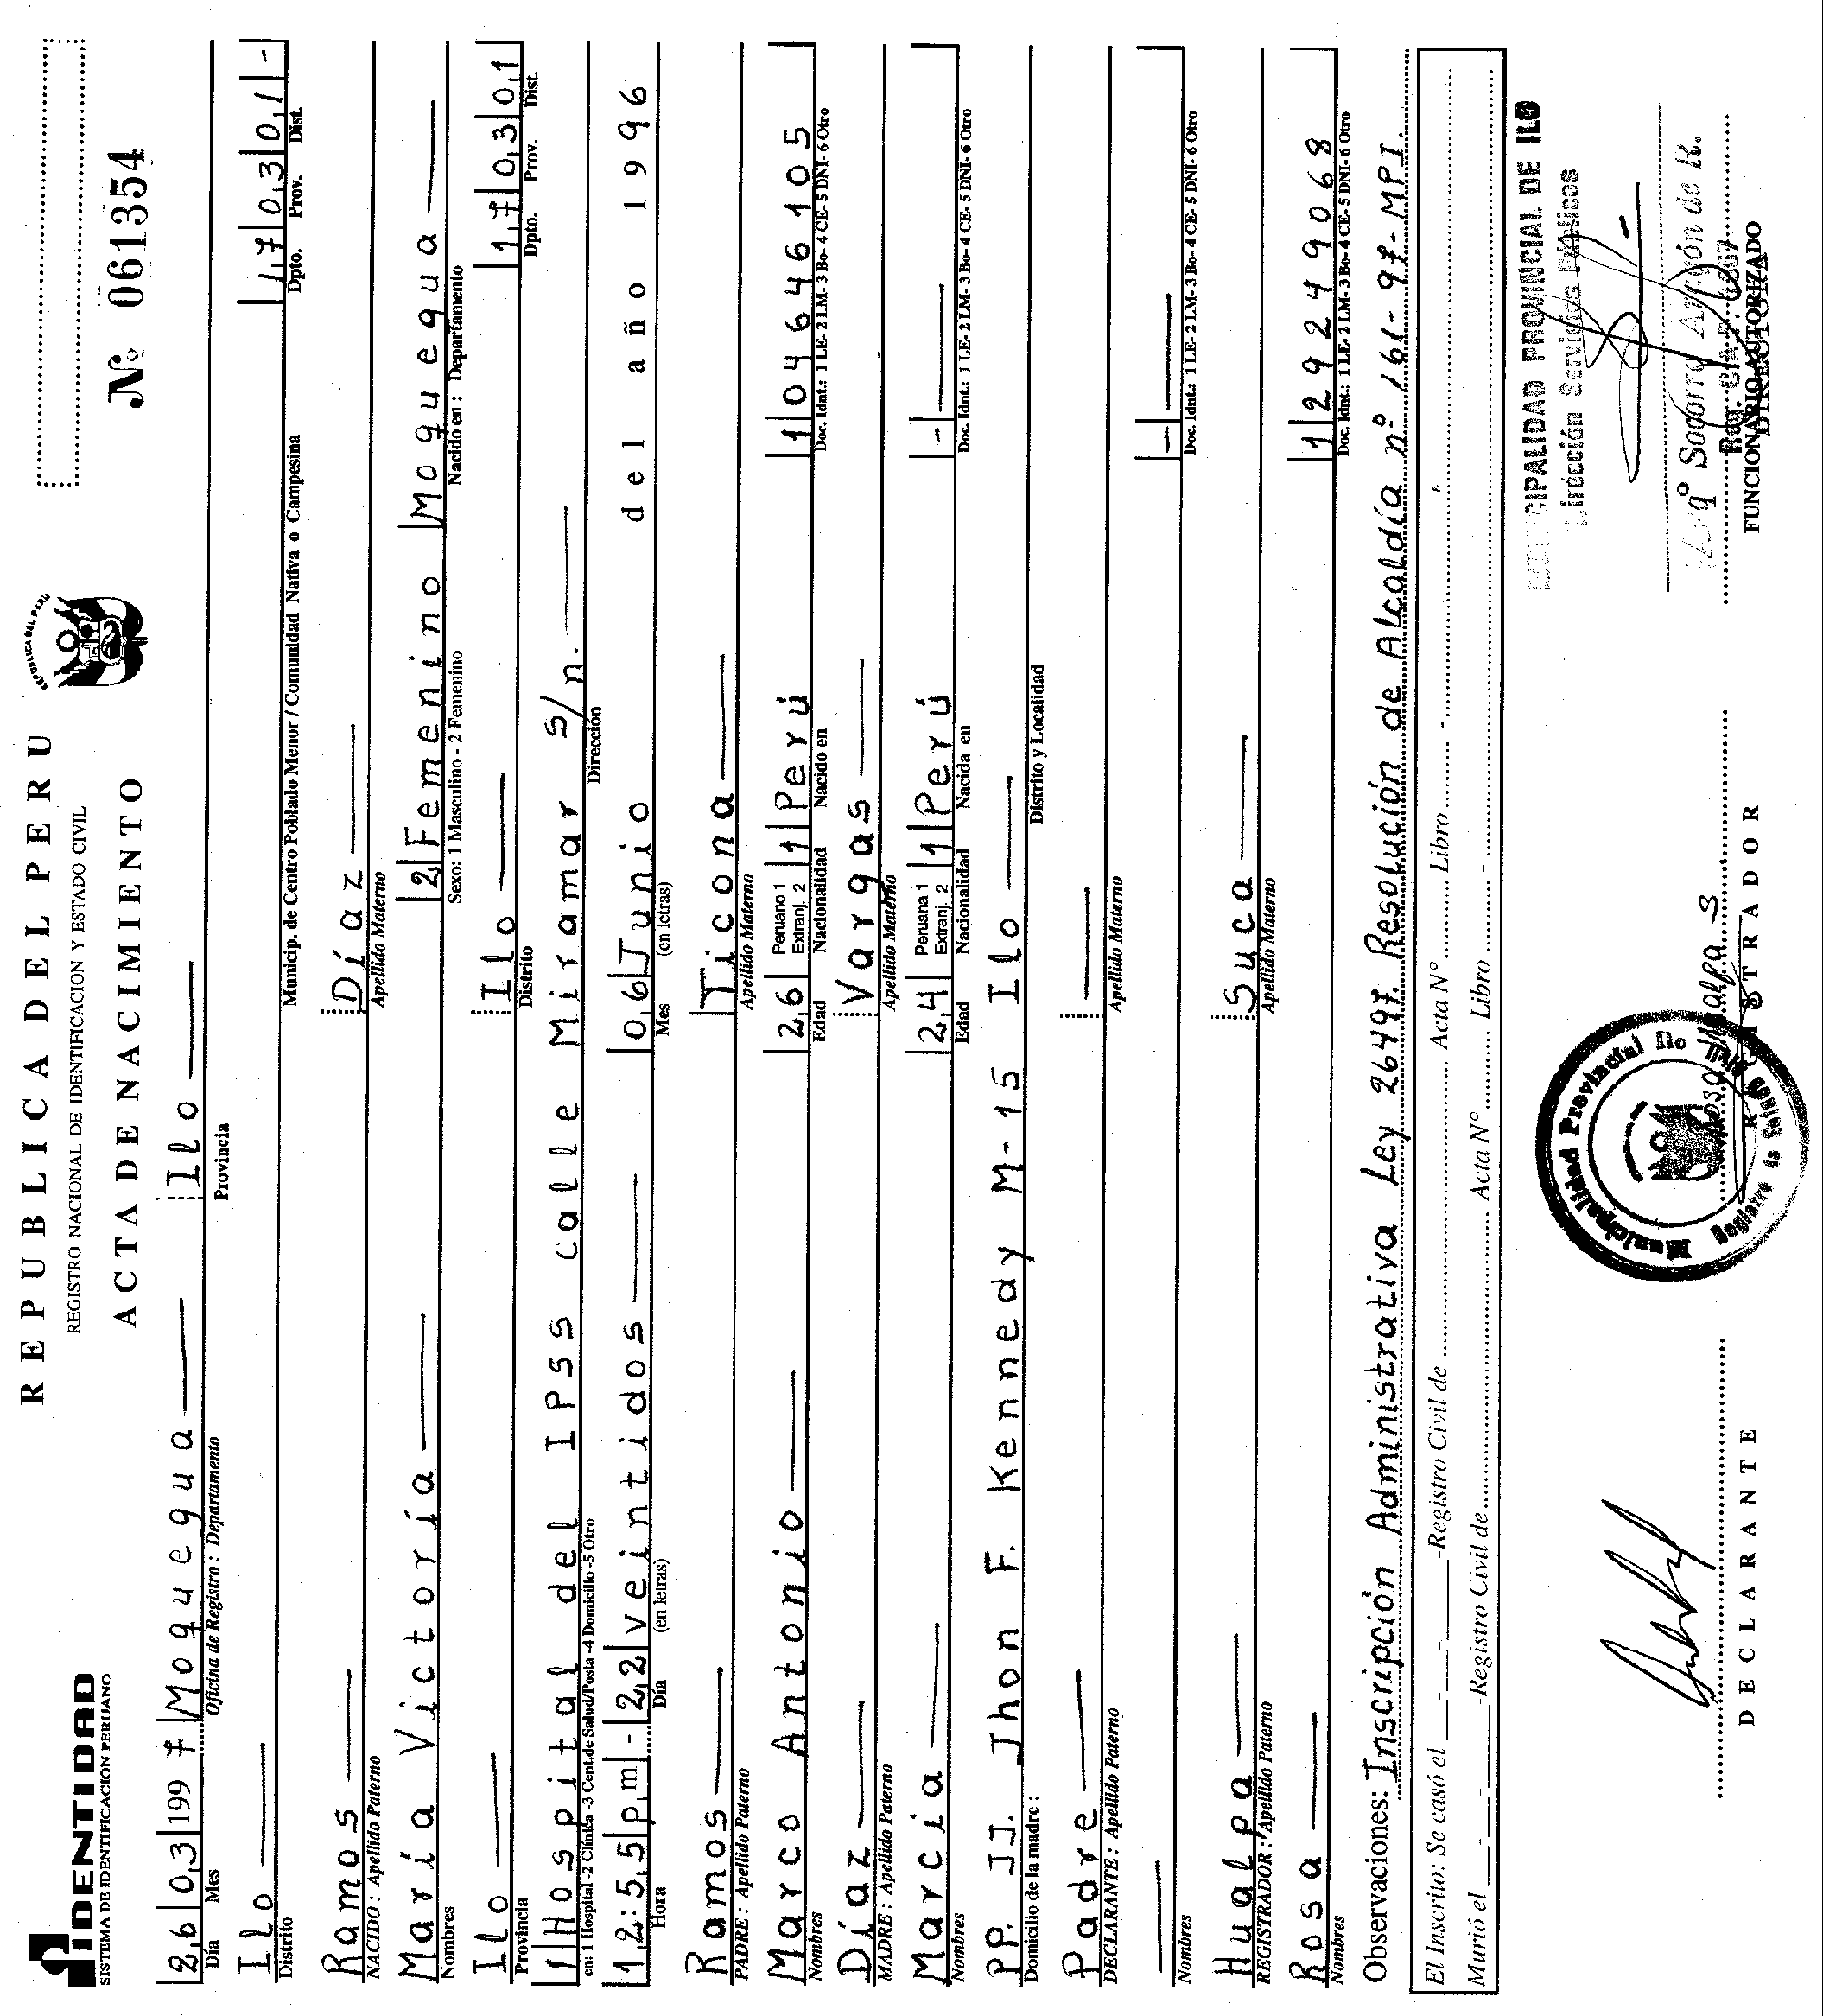 REPUBLICA DEL PERU
REPUBLICA DEL PERU
IDENTIDAD
SISTEMA DE IDENTIFICACION PERUANO
REGISTRO NACIONAL DE IDENTIFICACION Y ESTADO CIVIL
ACTA DE NACIMIENTO
Nº 061354
26 03 1997 Moquegua Ilo
Día Mes Oficina de Registro : Departamento Provincia
Ilo 17 03 01 -
Distrito Municip. de Centro Poblado Menor / Comunidad Nativa o Campesina Dpto. Prov. Dist.
Ramos Díaz
NACIDO : Apellido Paterno Apellido Materno
María Victoria 2 Femenino Moquegua
Nombres Sexo: 1 Masculino - 2 Femenino Nacido en : Departamento
Ilo Ilo 17 03 01
Provincia Distrito Dpto. Prov. Dist.
1 Hospital del IPSS calle Miramar s/n.
en: 1 Hospital -2 Clínica -3 Cent.de Salud/Posta -4 Domicilio -5 Otro Dirección
12:55 pm - 22 veintidos 06 Junio del año 1996
Hora Día (en letras) Mes (en letras)
Ramos Ticona
PADRE : Apellido Paterno Apellido Materno
Marco Antonio 26 Peruano 1 Extranj. 2 1 Perú 1 04646105
Nombres Edad Nacionalidad Nacido en Doc. Idnt.: 1 LE- 2 LM- 3 Bo- 4 CE- 5 DNI- 6 Otro
Díaz Vargas
MADRE : Apellido Paterno Apellido Materno
Marcia 24 Peruana 1 Extranj. 2 1 Perú -
Nombres Edad Nacionalidad Nacida en Doc. Idnt.: 1 LE- 2 LM- 3 Bo- 4 CE- 5 DNI- 6 Otro
PP. JJ. Jhon F. Kennedy M-15 Ilo
Domicilio de la madre : Distrito y Localidad
Padre
DECLARANTE : Apellido Paterno Apellido Materno
-
Nombres Doc. Idnt.: 1 LE- 2 LM- 3 Bo- 4 CE- 5 DNI- 6 Otro
Hualpa Suca
REGISTRADOR : Apellido Paterno Apellido Materno
Rosa 1 29249068
Nombres Doc. Idnt.: 1 LE- 2 LM- 3 Bo- 4 CE- 5 DNI- 6 Otro
Observaciones: Inscripción Administrativa Ley 26497. Resolución de Alcaldía nº 161-97-MPI.
El Inscrito: Se casó el - - -Registro Civil de Acta Nº Libro -
Murió el - - -Registro Civil de Acta Nº Libro -
CIPALIDAD PROVINCIAL DE ILO
Dirección Servicios Públicos
Municipalidad Provincial Ilo
Rosa Hualpa S
Socorro de R.
DECLARANTE
REGISTRADOR
FUNCIONARIO AUTORIZADO
DIRECTORA